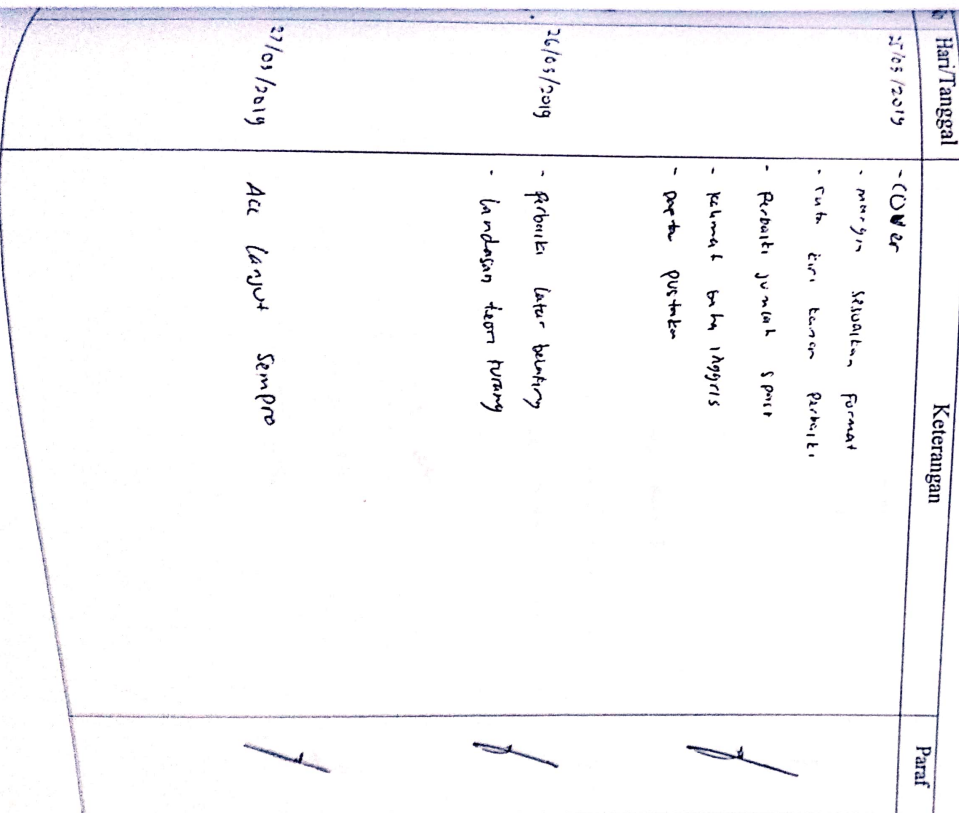 Hari/Tanggal Keterangan Paraf
25/03/2019
- COVER
- margin sesuaikan format
- rata kiri kanan perbaiki
- Perbaiki jumlah spasi
- kalimat bahasa inggris
- Daptar pustaka
26/03/2019
- perbaiki latar belakang
- landasan teori kurang
27/03/2019
Acc lanjut Sempro